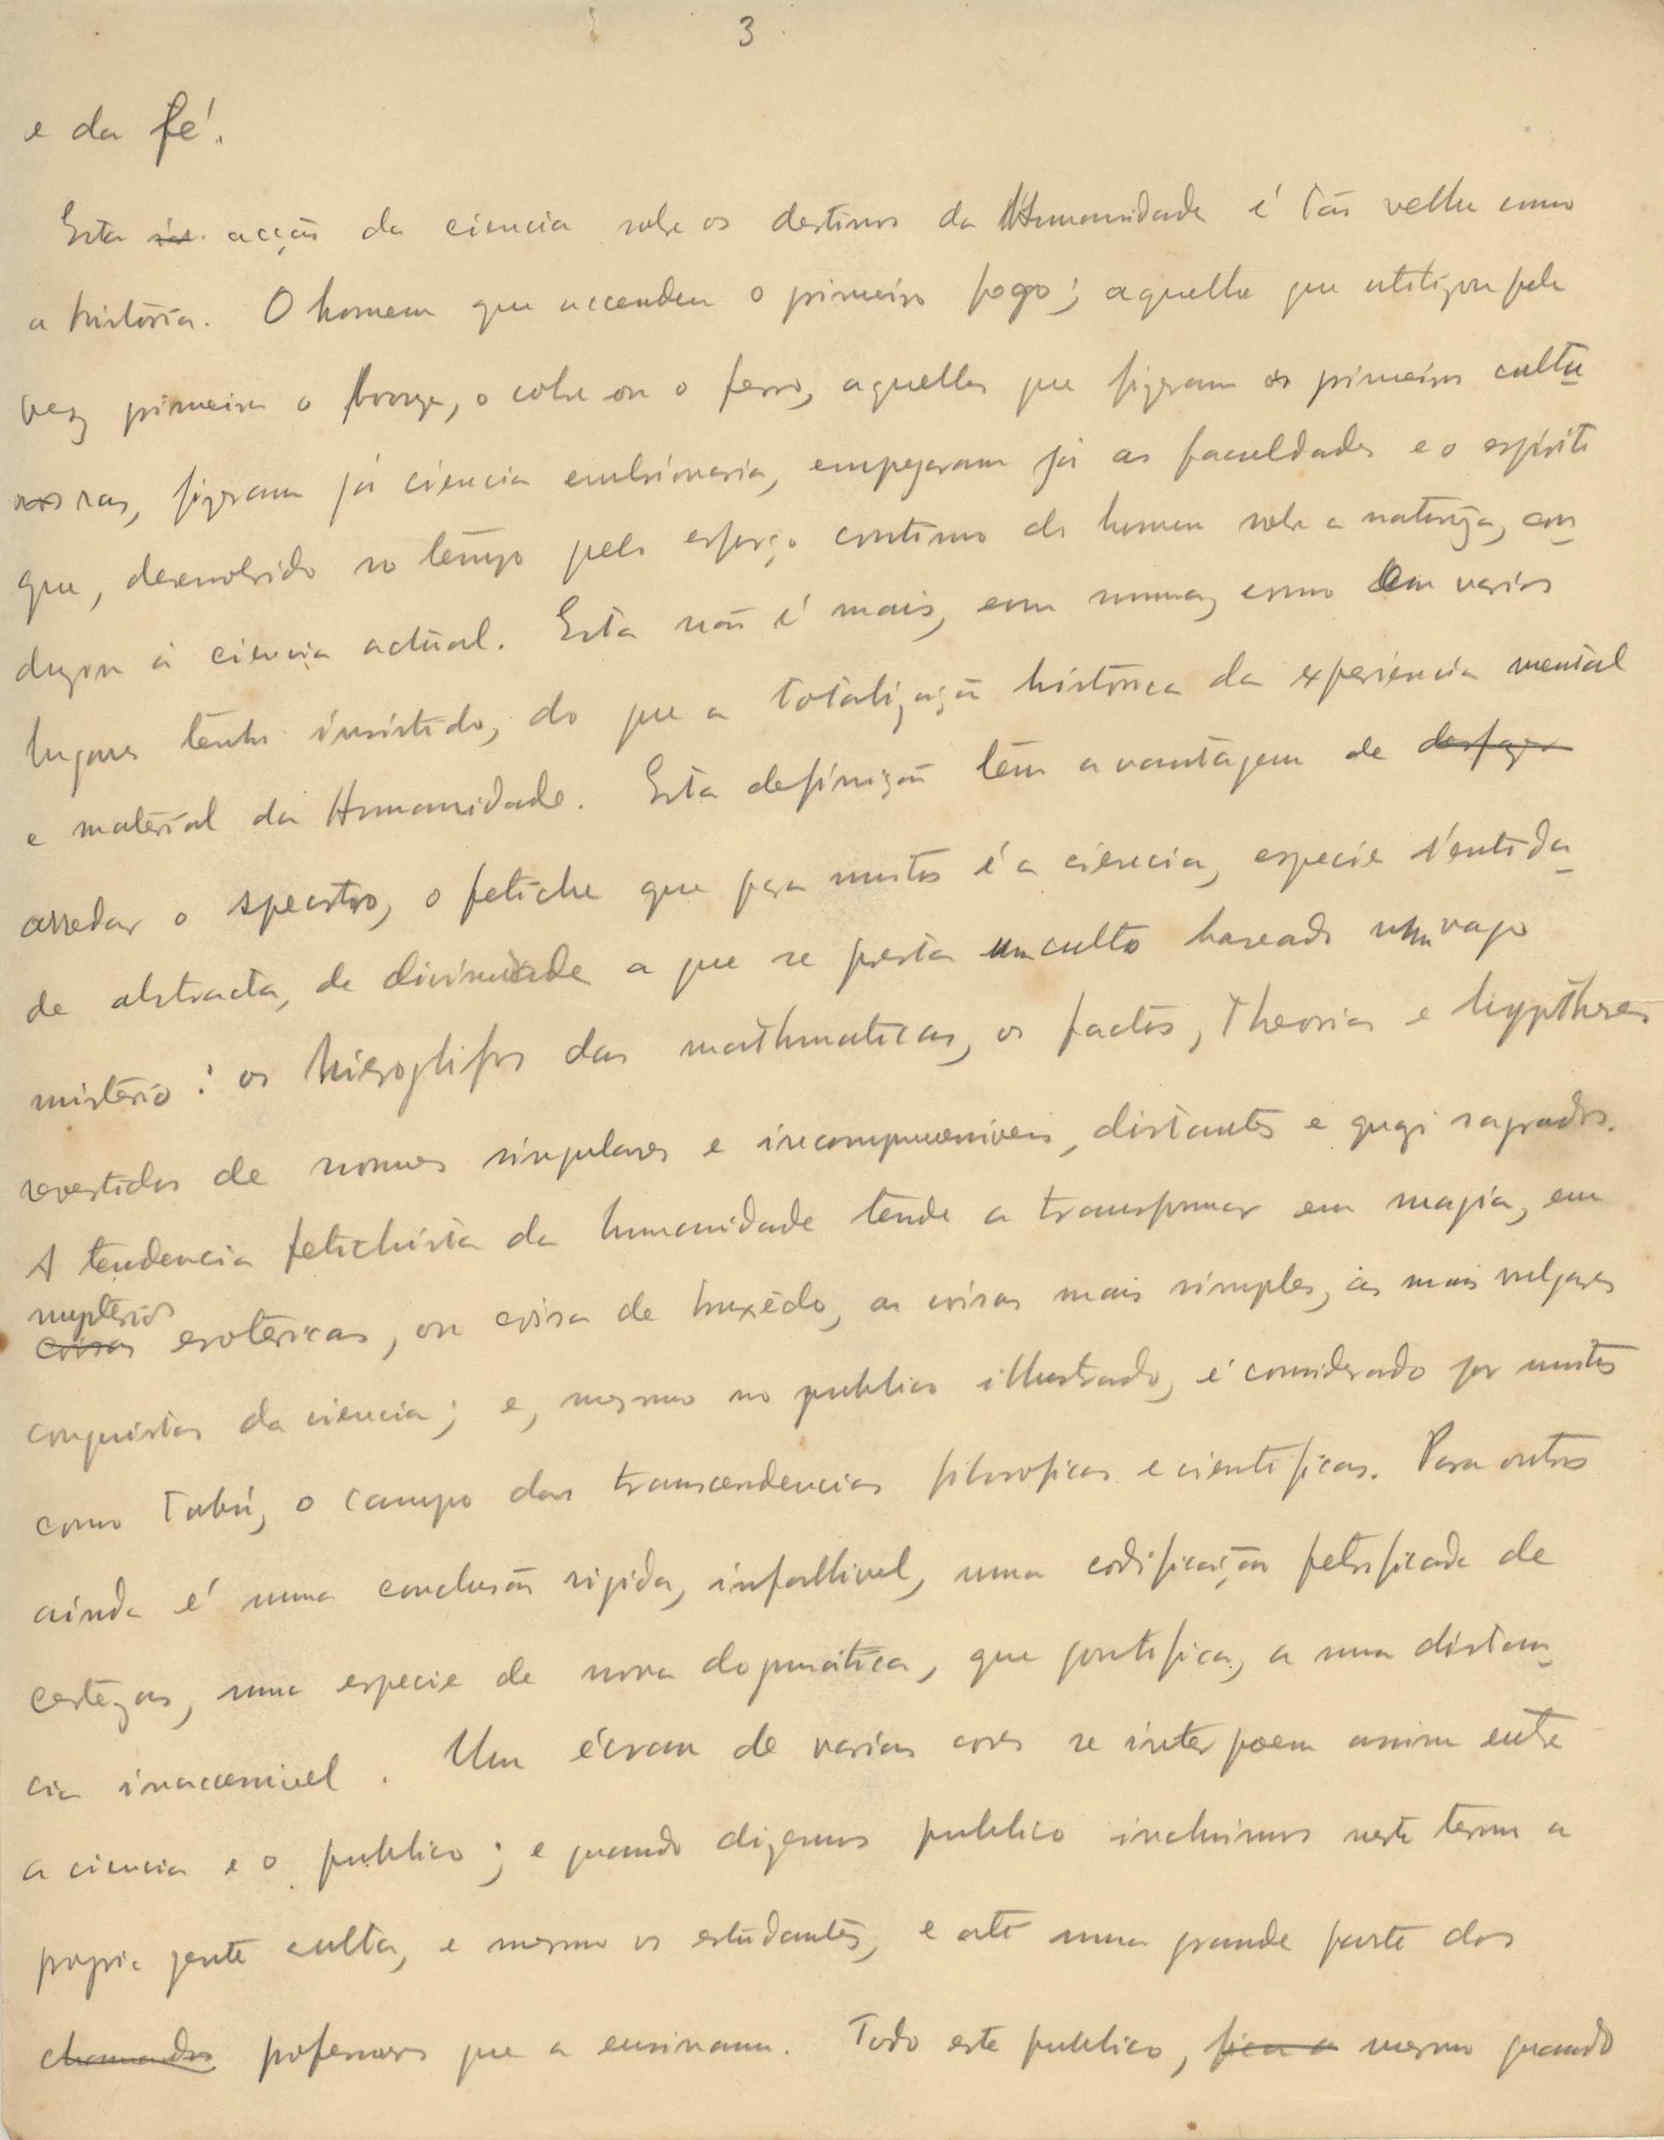 3
e da fé.
Esta acção da ciencia sobre os destinos da Humanidade é tão velha como
a historia. O homem que accendeu o primeiro fogo; aquelle que utilizou pela
vez primeira o bronze, o cobre ou o ferro, aquelles que fizeram as primeiras cultu
ras, fizeram já ciencia embrionaria, empregaram já as faculdades e o espirito
que, desenvolvido no tempo pelo esforço continuo do homem sobre a natureza, con
duziu á ciencia actual. Esta não é mais, em summa, como em varios
lugares tenho insistido, do que a totalização historica da experiencia mental
e material da Humanidade. Esta definição tem a vantagem de desfazer
arredar o spectro, o fetiche que para muitos é a ciencia, especie d'entida
de abstracta, de divindade a que se presta um culto baseado num vago
misterio: os hieroglifos das mathematicas, os factos, theorias e hyptheses
revestidos de nomes singulares e incomprensiveis, distantes e quazi sagrados.
A tendencia fetichista da humanidade tende a transformar em magia, em
mysterios
coisas esotericas, ou coisa de bruxêdo, as coisas mais simples, as mais vulgares
conquistas da ciencia; e, mesmo no publico illustrado, é considerado por muitos
como Tabú, o campo das transcendencias filosoficas e cientificas. Para outros
ainda é uma conclusão rigida, infallivel, uma codificação petrificada de
certezas, uma especie de nova dogmatica, que pontifica, a uma distan
cia inaccessivel. Um écran de varias cores se interpoem assim entre
a ciencia e o publico; e quando dizemos publico incluimos neste termo a
propria gente culta, e mesmo os estudantes, e até uma grande parte dos
chamados professores que a ensinam. Todo este publico, fica a mesmo quando